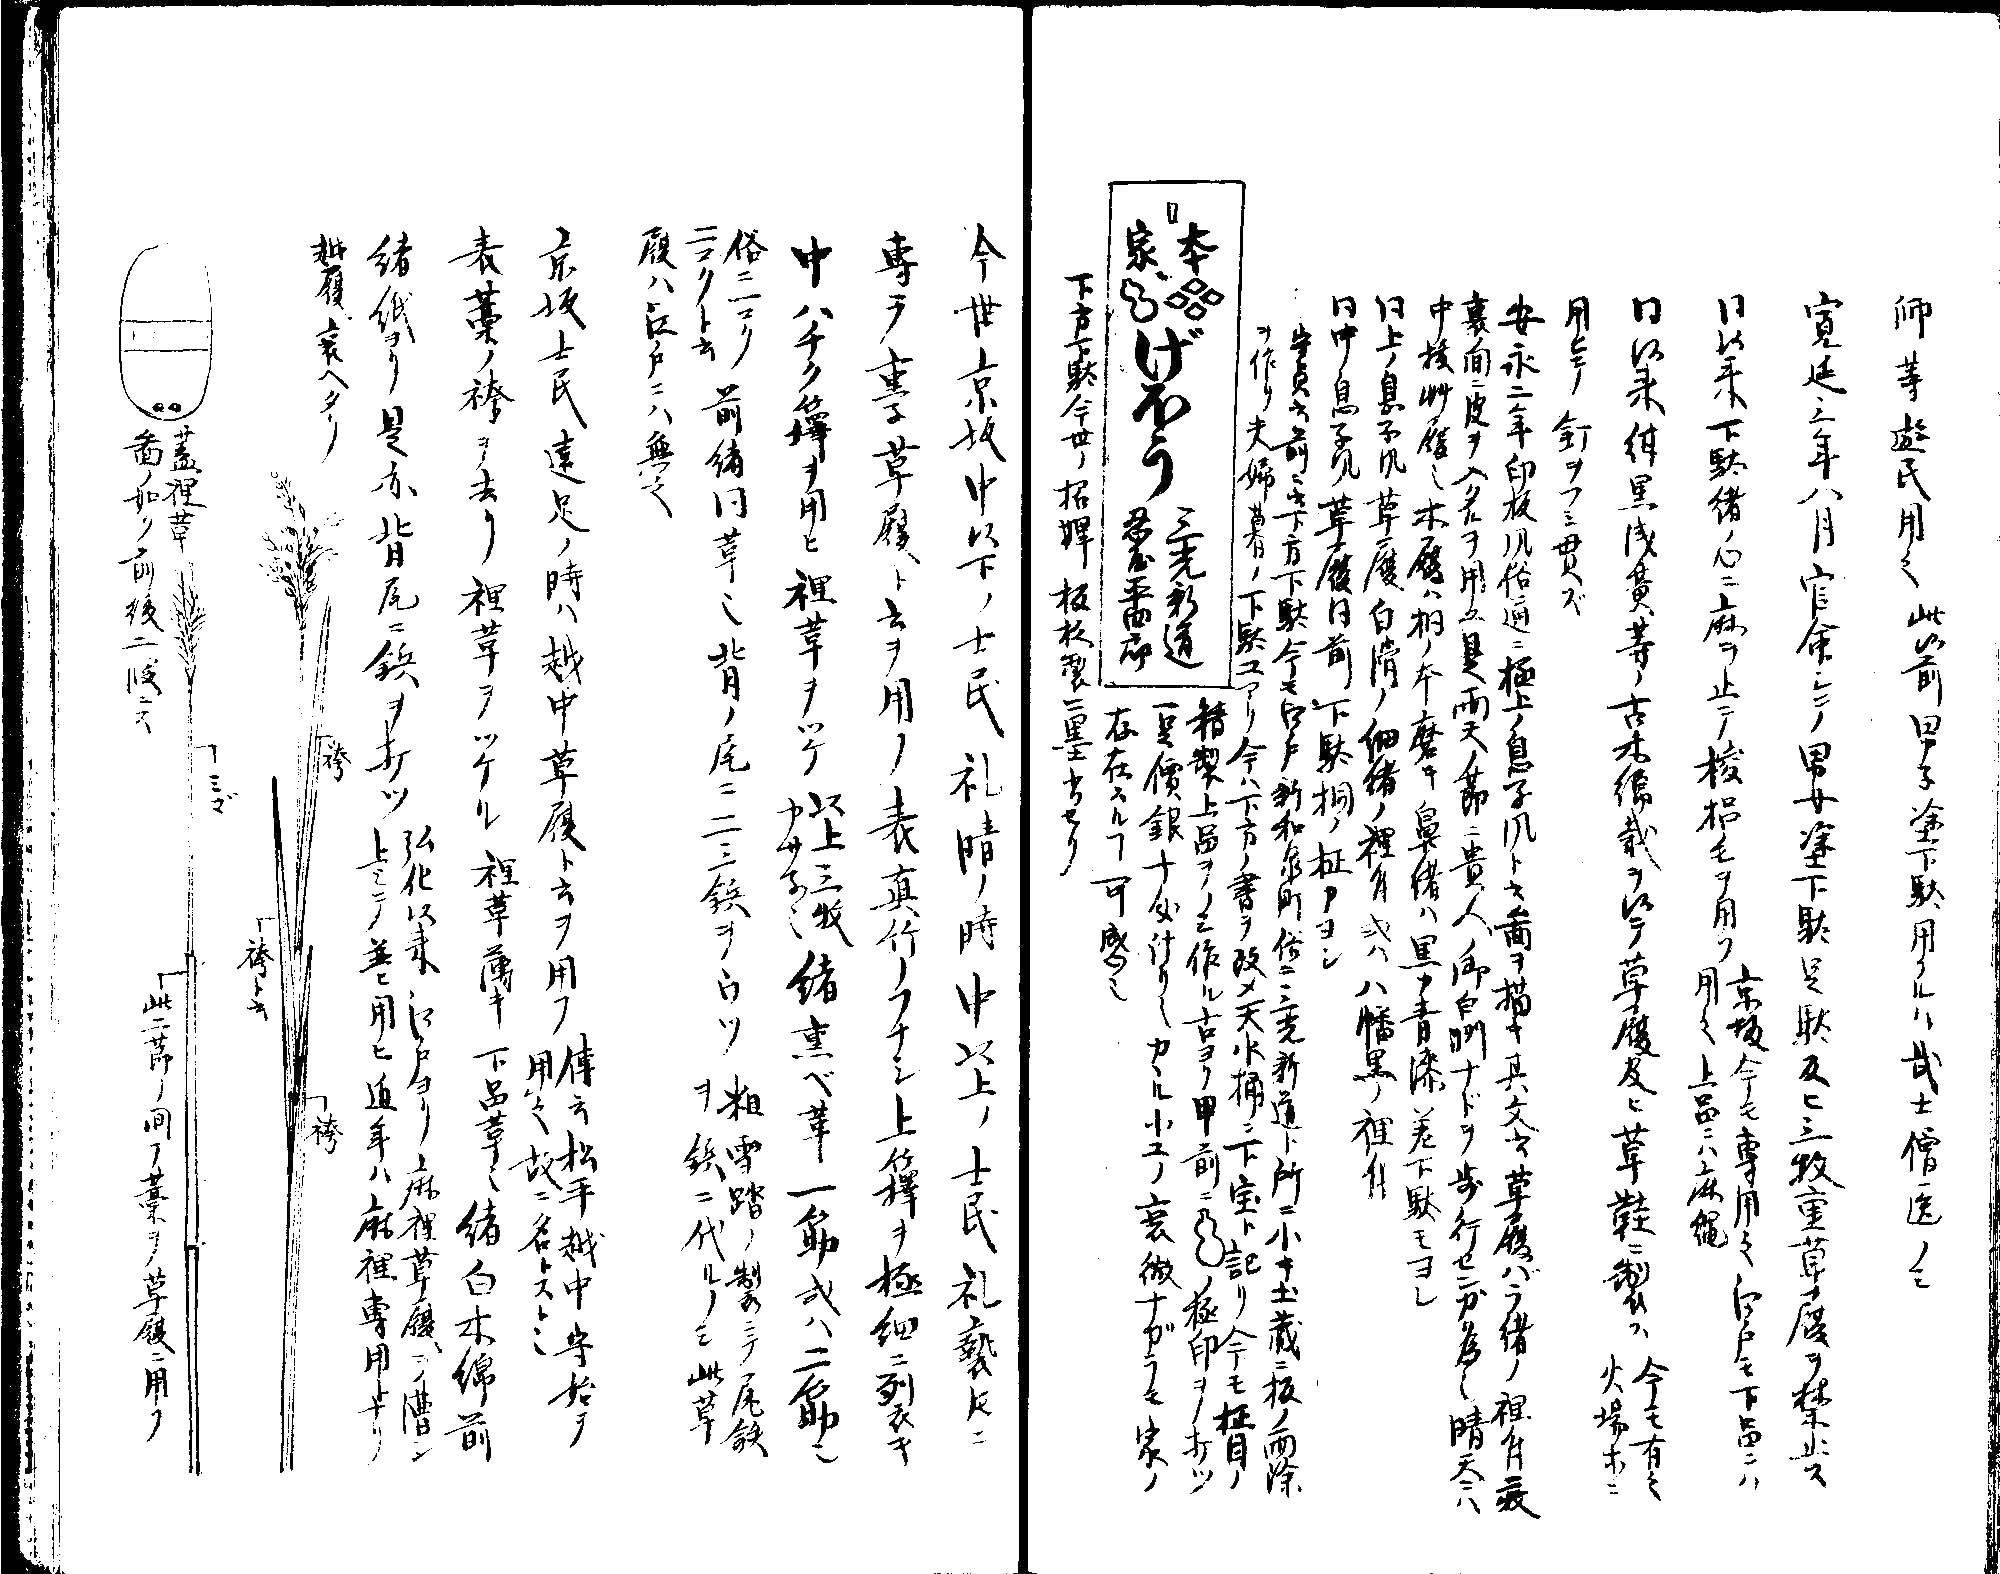 師等遊民用之此以前男子塗下駄用フルハ武士僧医ノミ
寛延三年八月官余シテ男女塗下駄足駄及ヒ三枚重草履ヲ禁止ス
同以来下駄緒ノ心ニ麻ヲ止テ棕梠毛ヲ用フ
京坂今モ専用之江戸モ下品ニハ
用之上品ニハ麻縄
同以来紺黒浅黄等ノ古木綿裁ヲ以テ草履及ヒ草鞋ニ製ス
今モ有之
火場木ニ
用之
釘ヲフミ貫ズ
安永二年印板風俗通ニ極上ノ息子風ト云図ヲ描キ其文云草履バラ緒ノ裡付
裏ノ間ニ皮ヲ入タルヲ用フ是雨天ノ節ニ貴人ノ御白洲ナドヲ歩行セン為也晴天ニハ
木履ハ桐ノ本磨キ鼻緒ハ黒カ青漆差下駄モヨシ
同上ノ息子風草履白清ノ細緒ノ裡付或ハ八幡黒ノ裡付
同中息子風草履同前下駄桐ノ柾目ヨシ
守貞云前ニ云下方下駄今モ江戸新和泉町俗ニ三光新道ト所ニ小キ土蔵ニ板ノ雨除
ヲ作リ夫婦暮ノ下駄工アリ今ハ下方ノ書ヲ改メ天水桶ニ下宝ト記リ今モ柾目ノ
精製上品ヲノミ作ル古ヨリ甲前ニ
ノ極印ヲ打ツ
一足價銀十匁計リ也カヽル小工ノ衰微ナガラモ家ノ
存在スルヿ可感也
本家
げほう
三光新道
下方下駄今世ノ招牌板枚製ニ墨書セリ
今世京坂中以下ノ士民礼晴ノ時中以上ノ士民礼褻トモニ
専ラ重子草履ト云ヲ用フ表真竹ノフチシ上籜ヲ極細ニ列衣キ
中ハチク籜ヲ用ヒ裡草ヲツケ
以上三枚
カサネ也
緒熏ベ革一筋或ハ二筋也
俗ニ一コク
二コクト云
前緒同革也背ノ尾ニ二三鋲ヲウツ
粗雪踏ノ製ニテ尾鉄
ヲ鋲ニ代ルノミ此草
履ハ江戸ニハ無之
京坂士民遠足ノ時ハ越中草履ト云ヲ用フ
傳云松平越中守始テ
用之故ニ名トスト也
表藁ノ袴ヲ去リ裡草ヲツケル裡草薄キ下品革也緒白木綿前
緒紙ヨリ是亦背尾ニ鋲ヲ打ツ
弘化以来江戸ヨリ麻裡草履ヲ漕シ
上ミテ並ヒ用ヒ近年ハ麻裡専用トナリ
越履衰ヘタリ
蓋裡草
図ノ如ク前後二段ニス
ミゴ
袴
袴ト云
袴
此二節ノ間ノ藁ヲ草履ニ用フ